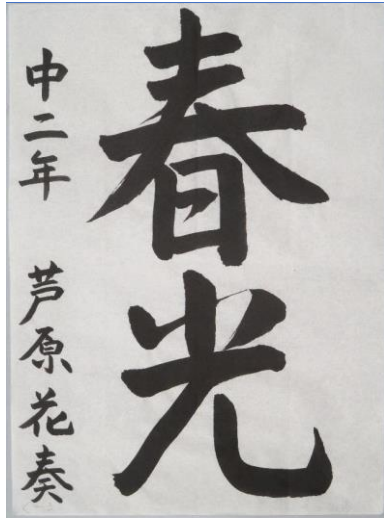 春光
中二年 芦原花奏